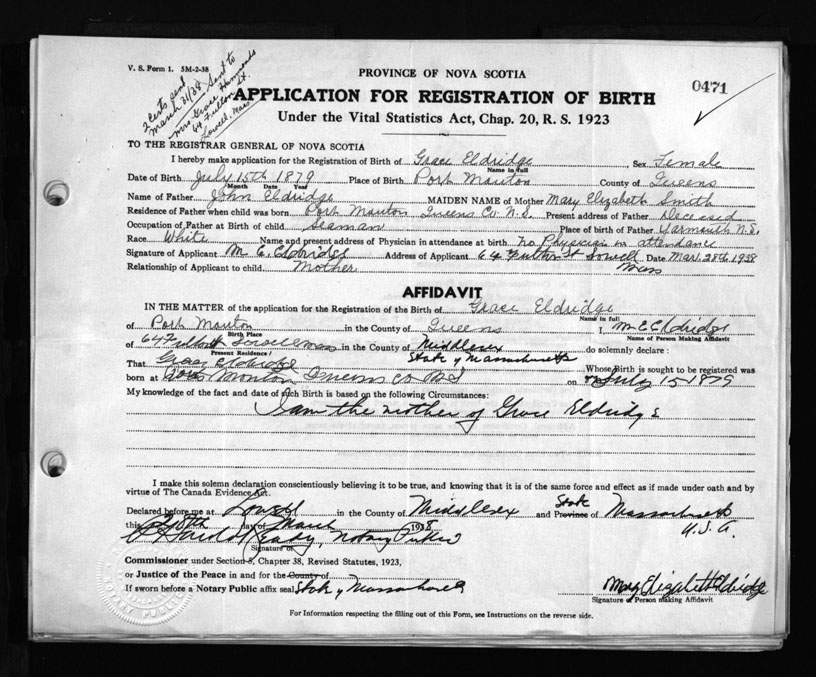 V. S. Form 1. 5M-2-38
2 certs sent
March 31/38 Sent to
Mrs Grace Hammonds
64 Fulton St.
Lowell, Mass
PROVINCE OF NOVA SCOTIA
0471
APPLICATION FOR REGISTRATION OF BIRTH
Under the Vital Statistics Act, Chap. 20, R. S. 1923
TO THE REGISTRAR GENERAL OF NOVA SCOTIA
I hereby make application for the Registration of Birth of Grace Eldridge Sex Female
Name in full
Date of Birth July 15th 1879 Place of Birth Port Mouton County of Queens
Month Date Year
Name of Father John Eldridge MAIDEN NAME of Mother Mary Elizabeth Smith
Residence of Father when child was born Port Mouton Queens Co. N.S. Present address of Father Deceased
Occupation of Father at Birth of child Seaman Place of birth of Father Yarmouth N.S.
Race White Name and present address of Physician in attendance at birth No Physician in attendance
Signature of Applicant M. E. Eldridge Address of Applicant 64 Fulton St Lowell Mass Date Mar. 28th 1938
Relationship of Applicant to child Mother
AFFIDAVIT
IN THE MATTER of the application for the Registration of the Birth of Grace Eldridge
Name in full
of Port Mouton in the County of Queens I, M E Eldridge
Birth Place Name of Person Making Affidavit
of 64 Fulton St Lowell Mass in the County of Middlesex State of Massachusetts do solemnly declare :
Present Residence
That Grace Eldridge Whose Birth is sought to be registered was
born at Port Mouton Queens Co N S on July 15 1879
My knowledge of the fact and date of such Birth is based on the following Circumstances:
I am the mother of Grace Eldridge
I make this solemn declaration conscientiously believing it to be true, and knowing that it is of the same force and effect as if made under oath and by
virtue of The Canada Evidence Act.
Declared before me at Lowell in the County of Middlesex and Province of State Massachusetts
this 28th day of March 1938 U.S.A.
Harold Eady, Notary Public
Signature of
Commissioner under Section 8, Chapter 38, Revised Statutes, 1923,
or Justice of the Peace in and for the County of
If sworn before a Notary Public affix seal State of Massachusetts
Mary Elizabeth Eldridge
Signature of Person making Affidavit
For Information respecting the filling out of this Form, see Instructions on the reverse side.
NOTARY PUBLIC